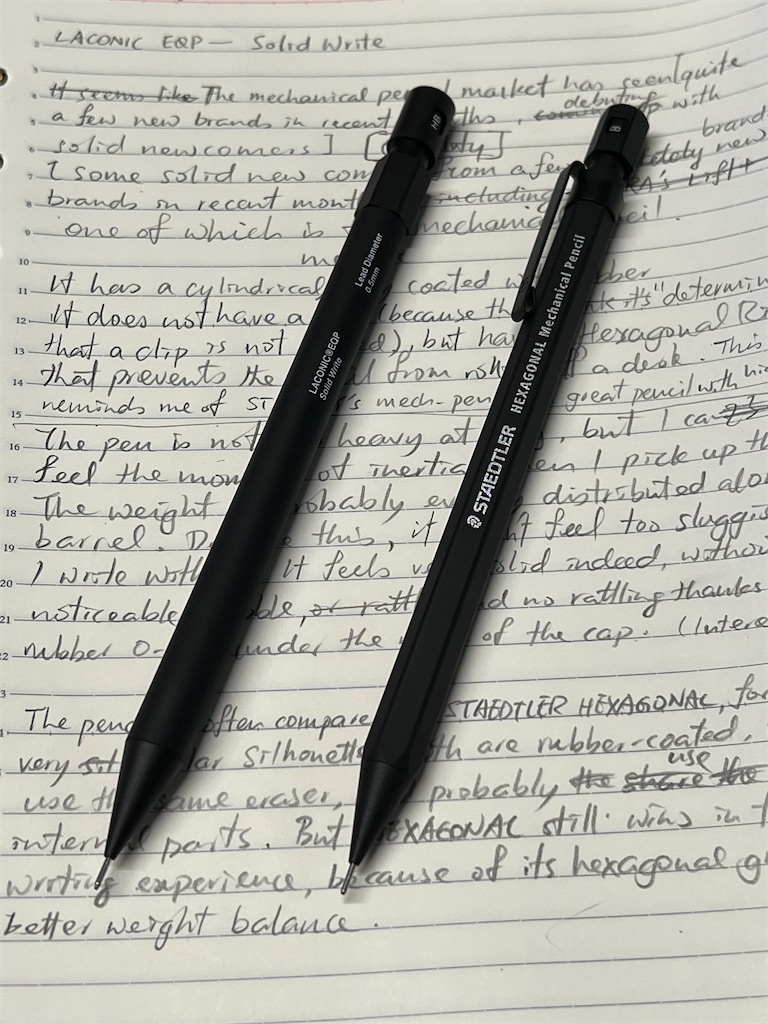 LACONIC EQP — Solid Write
It seems like The mechanical pen market has seen [quite
a few new brands in recent ths, debuting with
solid newcomers] [
[some solid new com from a few new brand
brands in recent mont including KA's Lift+
one of which is mechanic cil.
me
It has a cylindrical coated w ber
It does not have a (because th k it's "determin
that a clip is not d), but ha Hexagonal Ri
that prevents the l from roll f a desk. This
reminds me of ST 's mech-pen great pencil with hi
The pen is not heavy at , but I can
feel the mom of inertia en I pick up th
The weight robably ev distributed alo
barrel. D e this, it 't feel too sluggis
I write with It feels v olid indeed, withou
noticeable ble, or ratt d no rattling thanks
rubber O- under the of the cap. (Intere
The penc often compare STAEDTLER HEXAGONAL, for
very sit lar silhouette th are rubber-coated.
use th same eraser, probably the share the use
internal parts. But HEXAGONAL still wins in t
writing experience, because of its hexagonal g
better weight balance.
HB
Lead Diameter
0.5mm
LACONIC®EQP
Solid Write
B
STAEDTLER HEXAGONAL Mechanical Pencil
1
2
3
4
5
6
7
8
9
10
11
12
13
14
15
16
17
18
19
20
21